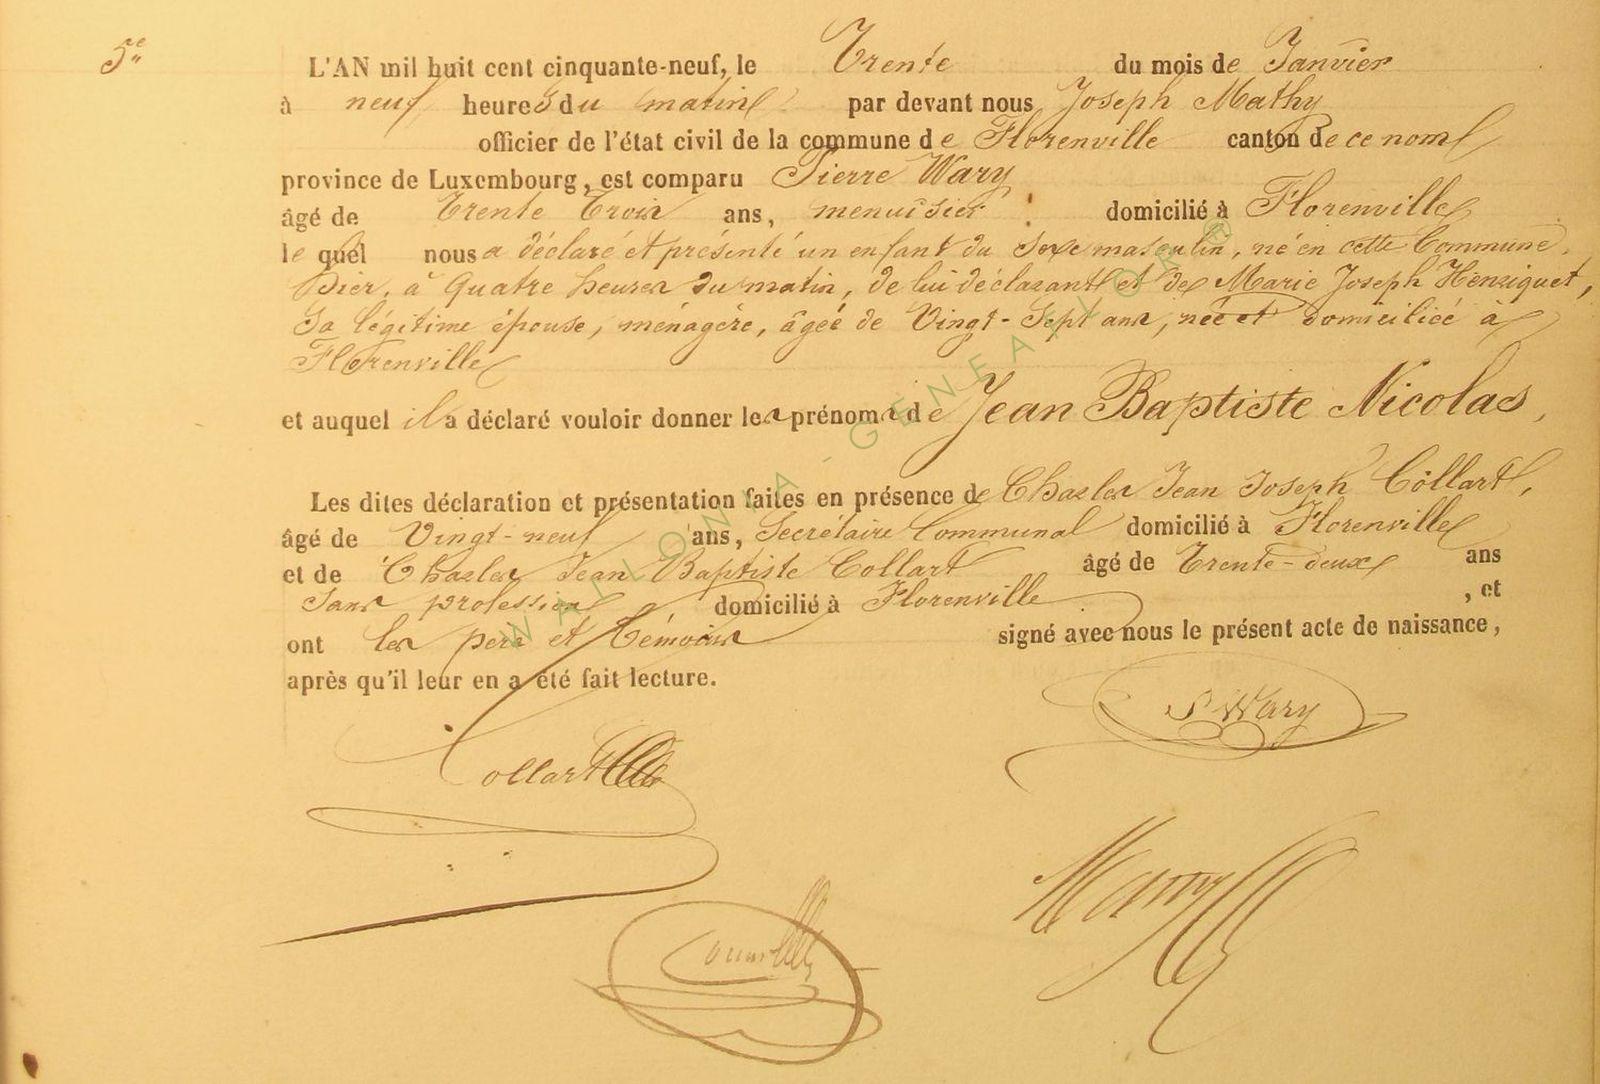 5e
L'AN mil huit cent cinquante-neuf, le Trente du mois de Janvier
à neuf heures du matin par devant nous Joseph Mathy
officier de l'état civil de la commune de Florenville canton de ce nom
province de Luxembourg, est comparu Pierre Wary
âgé de Trente Trois ans, menuisier domicilié à Florenville
le quel nous a déclaré et présenté un enfant du sexe masculin, né en cette Commune,
hier, à Quatre heures du matin, de lui déclarant et de Marie Joseph Henriquet,
Sa légitime épouse, ménagère, âgée de Vingt-Sept ans, née et domiciliée à
Florenville
et auquel il a déclaré vouloir donner les prénoms de Jean Baptiste Nicolas,
Les dites déclaration et présentation faites en présence de Charles Jean Joseph Collart,
âgé de Vingt-neuf ans, Secrétaire Communal domicilié à Florenville
et de Charles Jean Baptiste Collart âgé de Trente-deux ans
Sans profession domicilié à Florenville , et
ont les père et Témoins signé avec nous le présent acte de naissance,
après qu'il leur en a été fait lecture.
P Wary
Collart
WALLONIA-GENEALOR®